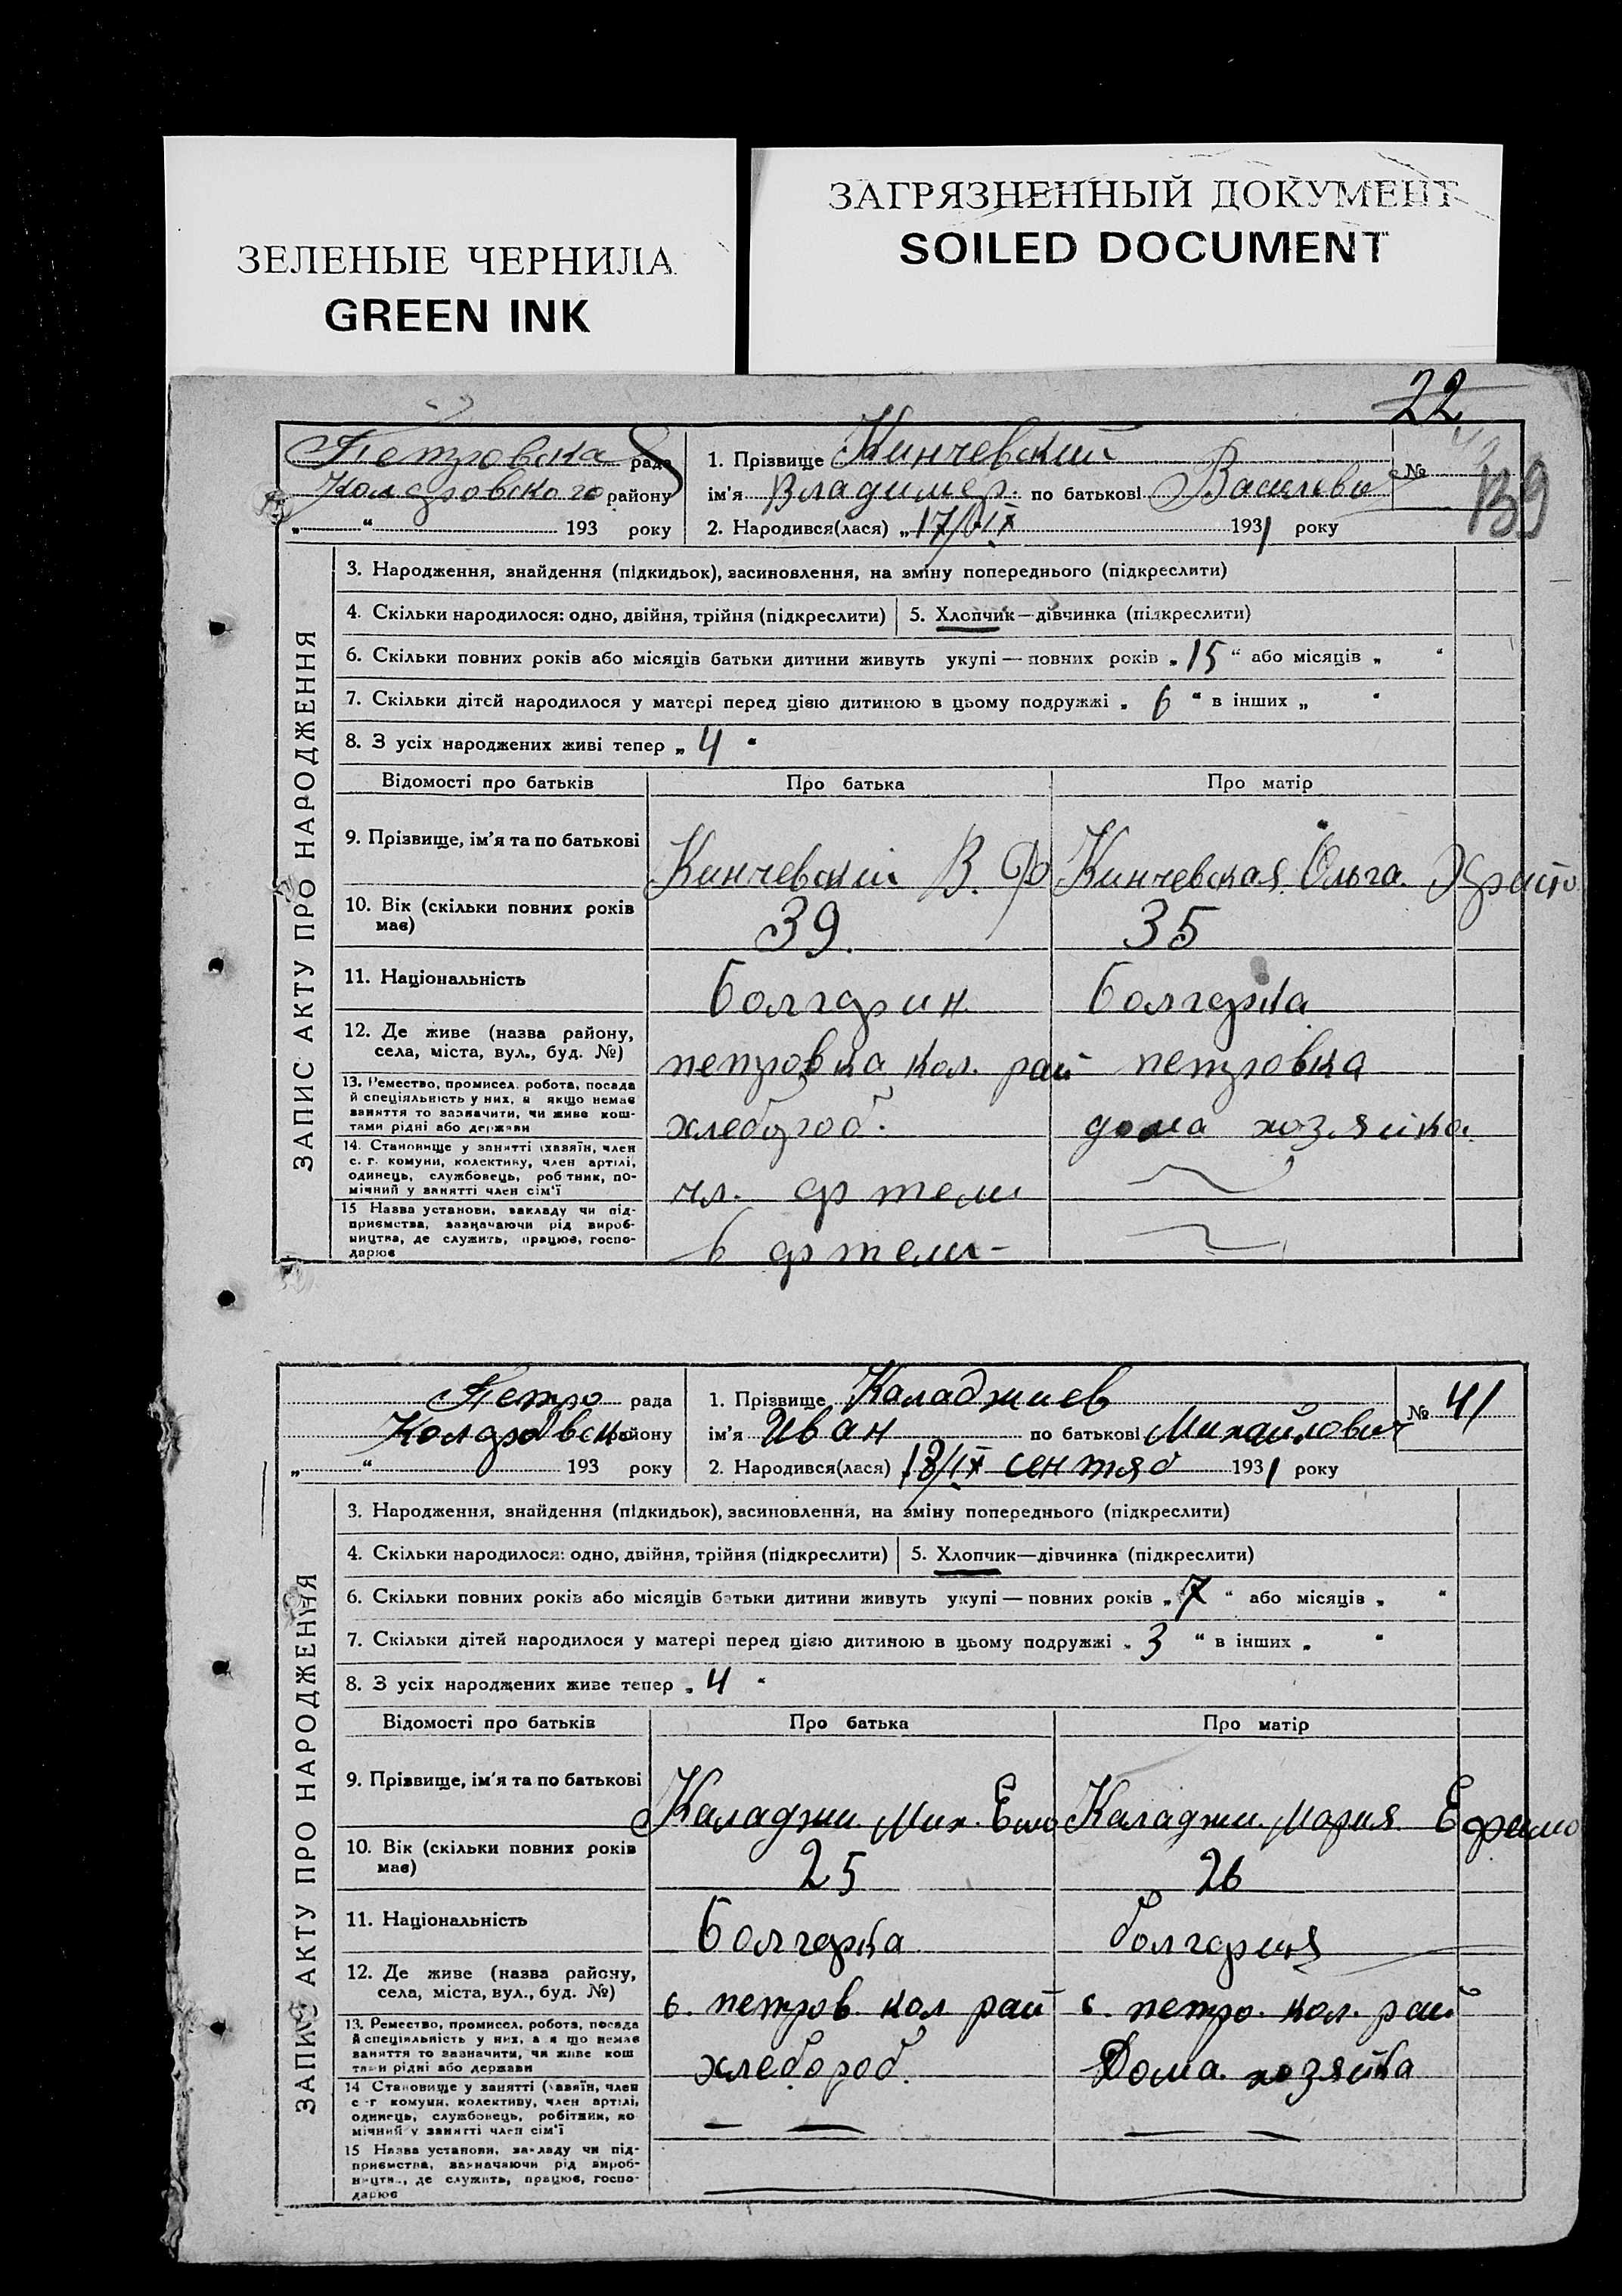 ЗЕЛЕНЫЕ ЧЕРНИЛА
GREEN INK
ЗАГРЯЗНЕННЫЙ ДОКУМЕНТ
SOILED DOCUMENT
22
Петровска рада
Коларовского району
„ “ 193 року
1. Прізвище Кинчевский
ім'я Владимер. по батькові Васильеви
2. Народився(лася) „17/IX 1931 року
№
139
ЗАПИС АКТУ ПРО НАРОДЖЕННЯ
3. Народження, знайдення (підкидьок), засиновлення, на зміну попереднього (підкреслити)
4. Скільки народилося: одно, двійня, трійня (підкреслити) 5. Хлопчик—дівчинка (підкреслити)
6. Скільки повних років або місяців батьки дитини живуть укупі — повних років „ 15 “ або місяців „ “
7. Скільки дітей народилося у матері перед цією дитиною в цьому подружжі „ 6 “ в інших „ “
8. З усіх народжених живі тепер „ 4 “
Відомості про батьків Про батька Про матір
9. Прізвище, ім'я та по батькові Кинчевский В. Ф Кинчевская Ольга. Христо
10. Вік (скільки повних років має) 39. 35
11. Національність болгарин болгарка
12. Де живе (назва району, села, міста, вул., буд. №) петровка кол. рай петровка
13. Ремество, промисел, робота, посада й спеціяльність у них, а якщо немає заняття то зазначити, чи живе коштами рідні або держави хлебороб. дома хозяйка
14. Становище у занятті (хазяїн, член с. г. комуни, колективу, член артілі, одинець, службовець, робітник, помічний у занятті член сім'ї чл. артели
15 Назва установи, закладу чи підприємства, зазначаючи рід виробництва, де служить, працює, господарює в артели-
Петро рада
Коларовско району
„ “ 193 року
1. Прізвище Каладжиев
ім'я Иван по батькові Михайлович
2. Народився(лася) „18/IX сентяб 1931 року
№ 41
ЗАПИС АКТУ ПРО НАРОДЖЕННЯ
3. Народження, знайдення (підкидьок), засиновлення, на зміну попереднього (підкреслити)
4. Скільки народилося: одно, двійня, трійня (підкреслити) 5. Хлопчик—дівчинка (підкреслити)
6. Скільки повних років або місяців батьки дитини живуть укупі — повних років „ 7 “ або місяців „ “
7. Скільки дітей народилося у матері перед цією дитиною в цьому подружжі „ 3 “ в інших „ “
8. З усіх народжених живе тепер „ 4 “
Відомості про батьків Про батька Про матір
9. Прізвище, ім'я та по батькові Каладжи Мих. Каладжи Мария Ефимо
10. Вік (скільки повних років має) 25 26
11. Національність болгарка
12. Де живе (назва району, села, міста, вул., буд. №) с. петров. кол рай с. петро. кол. рай
13. Ремество, промисел, робота, посада й спеціяльність у них, а якщо немає заняття то зазначити, чи живе коштами рідні або держави хлебороб. Дома хозяйка
14 Становище у занятті (хазяїн, член с. г комуни, колективу, член артілі, одинець, службовець, робітник, помічний у занятті член сім'ї — — — —
15 Назва установи, закладу чи підприємства, зазначаючи рід виробництва, де служить, працює, господарює